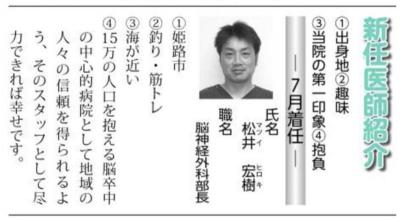 新任医師紹介
①出身地②趣味
③当院の第一印象④抱負
― 7月着任 ―
氏名
松井 宏樹
マツイ ヒロキ
職名
脳神経外科部長
①姫路市
②釣り・筋トレ
③海が近い
④15万の人口を抱える脳卒中
の中心的病院として地域の
人々の信頼を得られるよ
う、そのスタッフとして尽
力できれば幸せです。